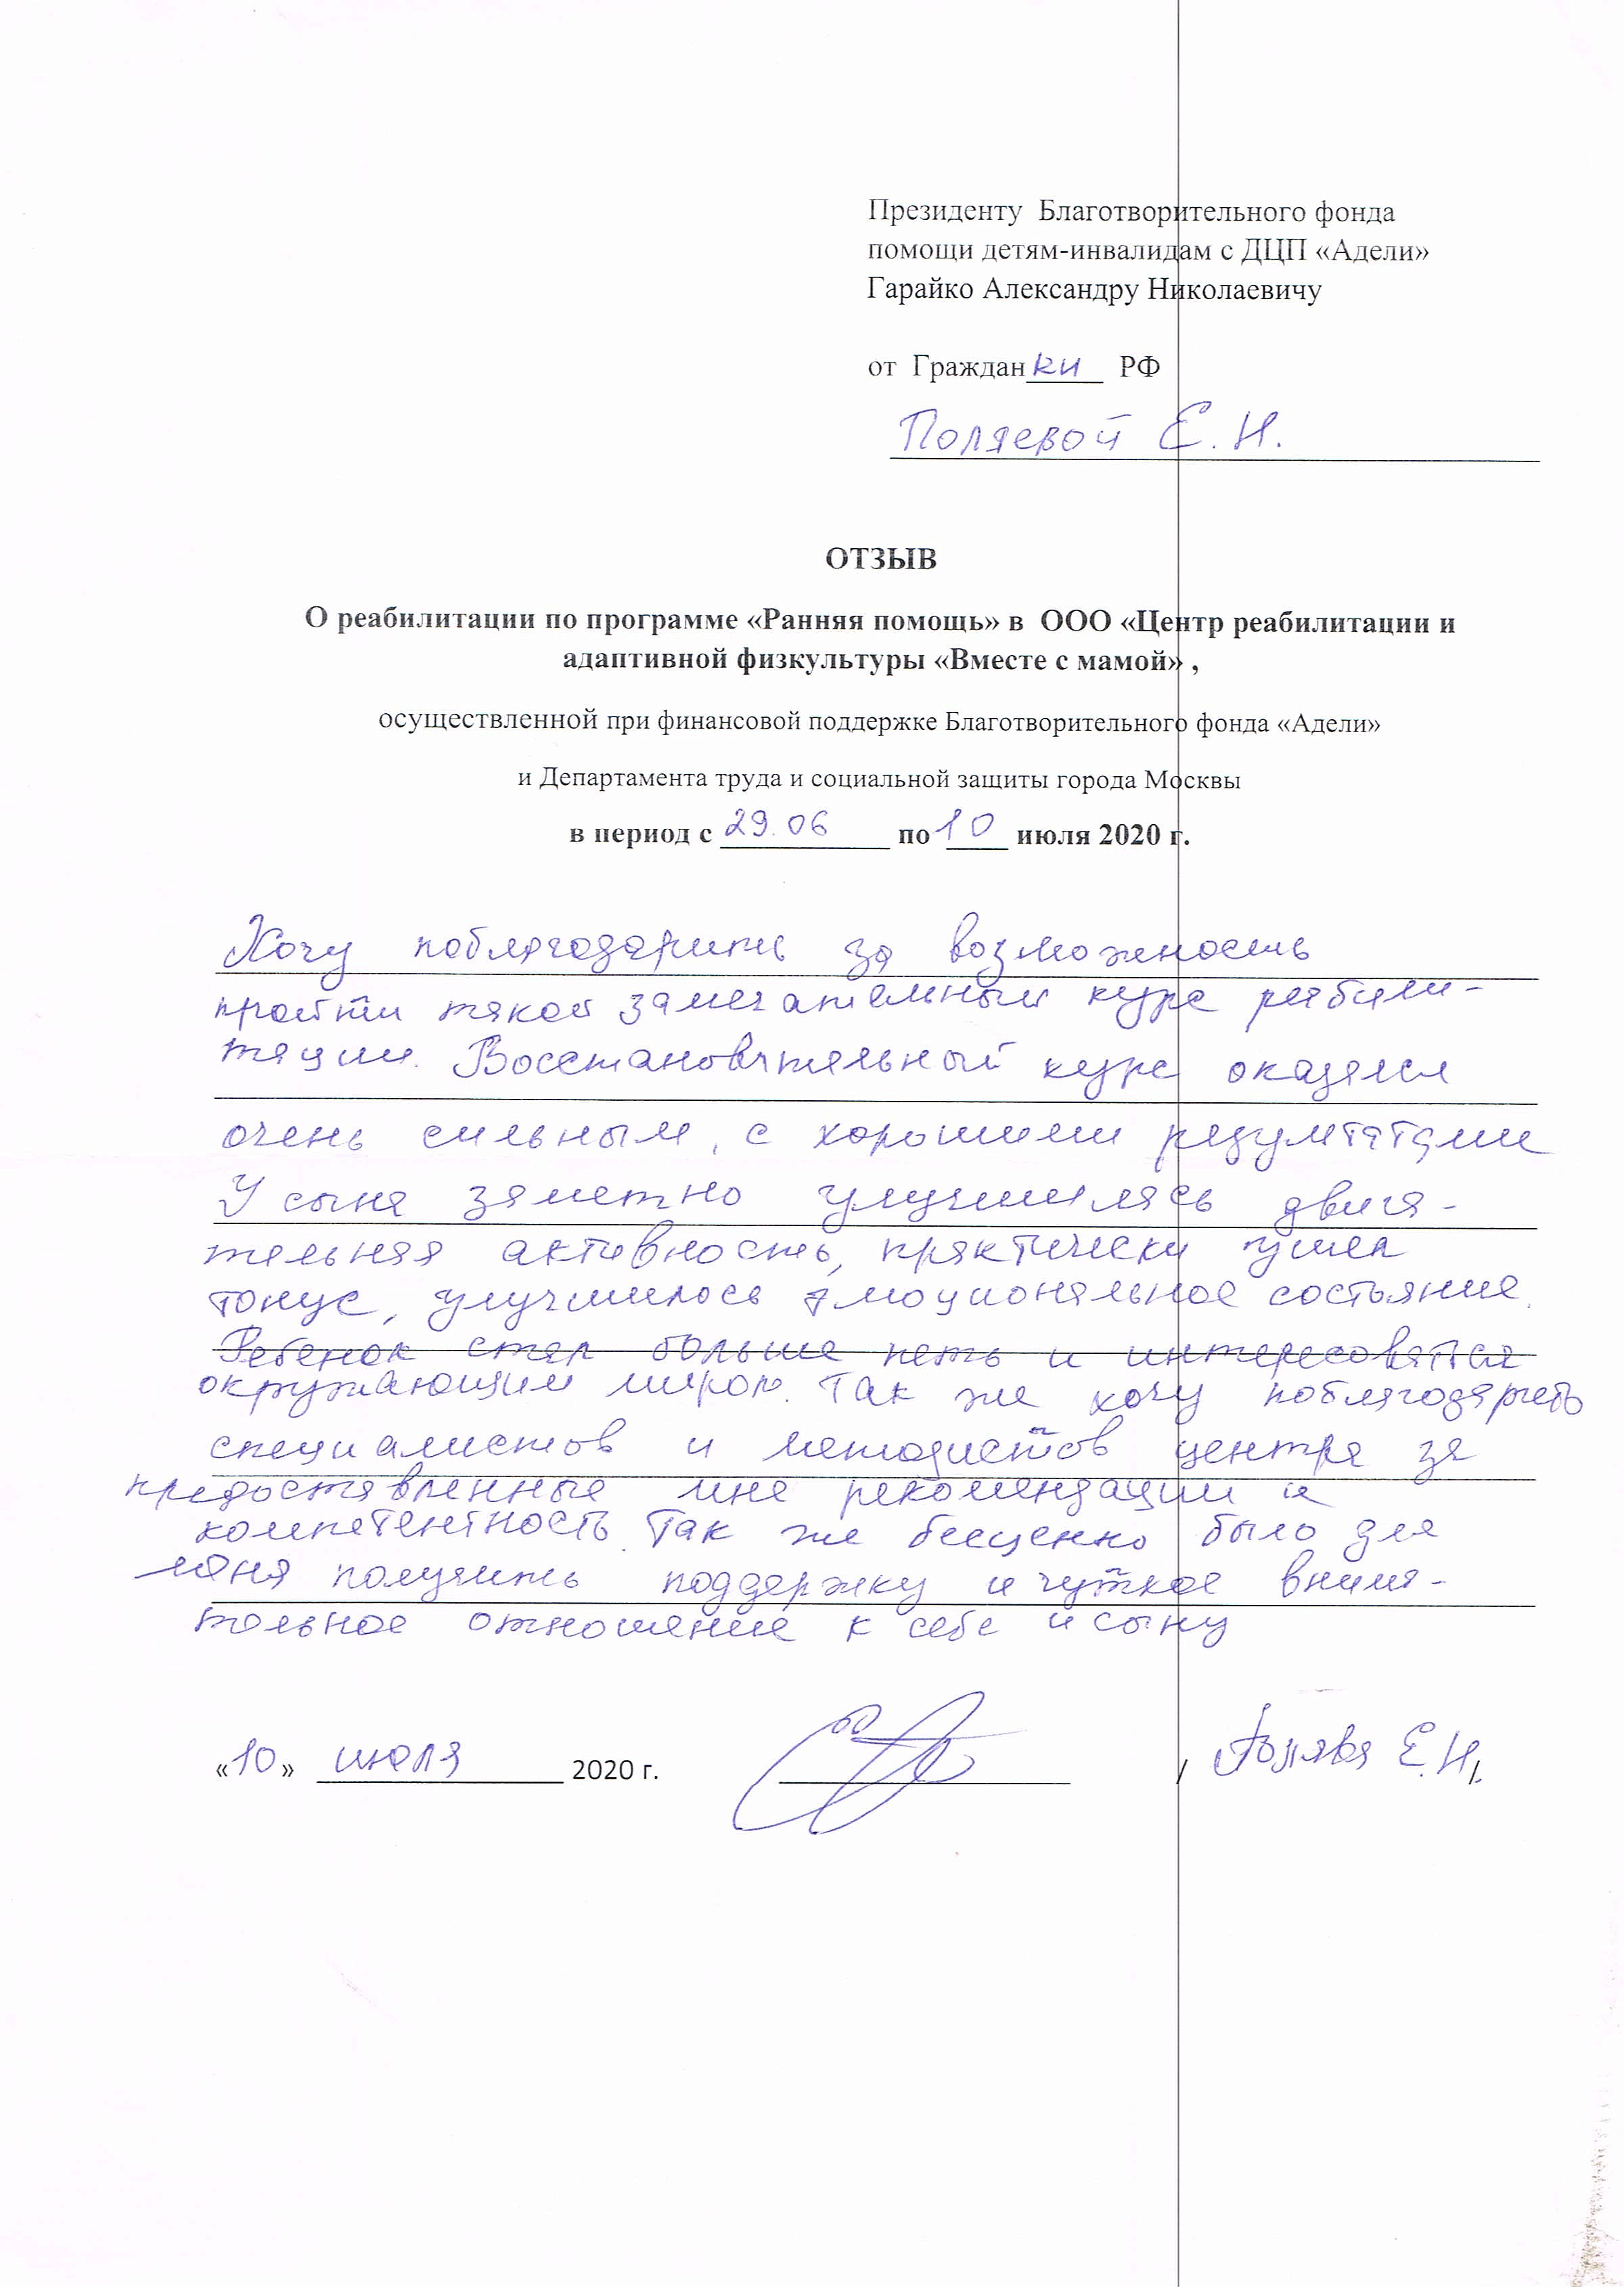 Президенту Благотворительного фонда
помощи детям-инвалидам с ДЦП «Адели»
Гарайко Александру Николаевичу
от Гражданки РФ
Поляевой Е.Н.
ОТЗЫВ
О реабилитации по программе «Ранняя помощь» в ООО «Центр реабилитации и
адаптивной физкультуры «Вместе с мамой» ,
осуществленной при финансовой поддержке Благотворительного фонда «Адели»
и Департамента труда и социальной защиты города Москвы
в период с 29.06 по 10 июля 2020 г.
Хочу поблагодарить за возможность
пройти такой замечательный курс реабили-
тации. Восстановительный курс оказался
очень сильным, с хорошими результатами
У сына заметно улучшилась двига-
тельная активность, практически ушел
тонус, улучшилось эмоциональное состояние.
Ребенок стал больше петь и интересоваться
окружающим миром. Так же хочу поблагодарить
специалистов и методистов центра за
предоставленные мне рекомендации и
компетентность. Так же бесценно было для
меня получить поддержку и чуткое внима-
тельное отношение к себе и сыну
«10» июля 2020 г. / Поляева Е.Н./